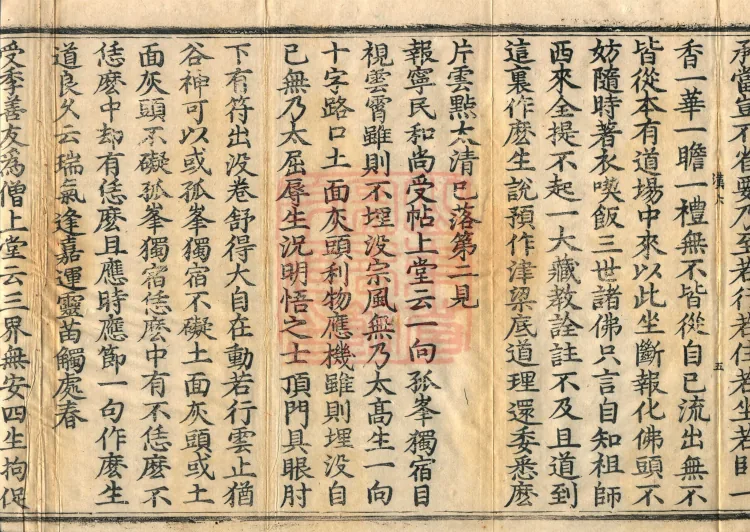 承當豈不省要乃至若行若住若坐若卧一
香一華一瞻一禮無不皆從自己流出無不
皆從本有道場中來以此坐斷報化佛頭不
妨隨時著衣喫飯三世諸佛只言自知祖師
西來全提不起一大藏教詮註不及且道到
這裏作麽生說預作津梁底道理還委悉麽
片雲點太清已落第二見
報寧民和尚受帖上堂云一向孤峯獨宿目
視雲霄雖則不埋没宗風無乃太髙生一向
十字路口土面灰頭利物應機雖則埋没自
己無乃太屈辱生況明悟之士頂門具眼肘
下有符出没卷舒得大自在動若行雲止猶
谷神可以或孤峯獨宿不礙土面灰頭或土
面灰頭不礙孤峯獨宿恁麽中有不恁麽不
恁麽中却有恁麽且應時應節一句作麽生
道良久云瑞氣逢嘉運靈苗觸處春
受李善友爲僧上堂云三界無安四生拘促
漢六
五